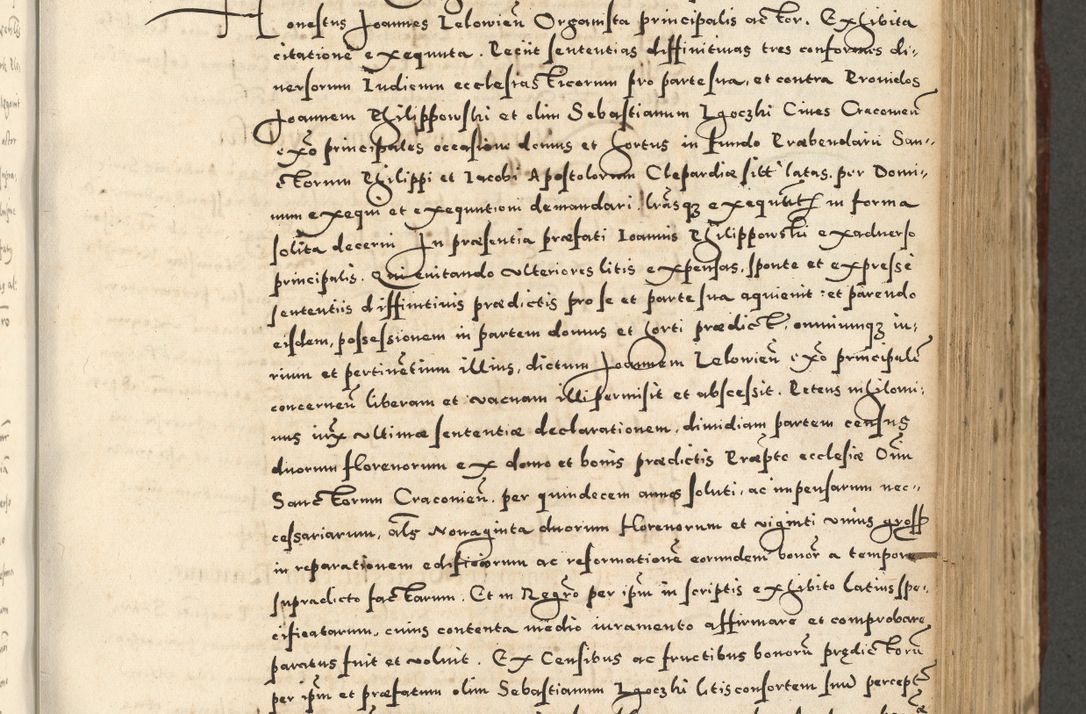 Honestus Joannes Lelowień Organista principalis actor. Exhibita
citatione exequuta. Petiit sententias diffinitiuas tres conformes di-
uersorum Iudicum ecclesiasticorum pro parte sua, et contra Prouidos
Joannem Philippowski et olim Sebastianum Lgoczki Ciues Cracouień
exaduō principales occasione domus et hortus in fundo Præbendarii San-
ctorum Philippi et Iacobi Apostolorum Clepardiæ sitī latas, per Domi-
num exequi et exequutioni demandari. lrāsqȝ exequut in forma
solita decerni. In præsentia præfati Ioannis Philippowski ex aduerso
principalis. Qui euitando vlteriores litis expensas, sponte et expresse
sententiis diffinitiuis prædictis pro se et parte sua aquieuit: et parendo
eisdem, possessionem in partem domus et horti prædict, omniumqȝ iu-
rium et pertinētium illius, dictum Joannem Lelowień exō principalē
concerneń liberam et vacuam illi permisit et abscessit. Petens nihilomi-
nus iux vltimæ sententiæ declarationem, dimidiam partem census
duorum florenorum ex domo et bonis prædictis Præpto ecclesiæ Oīm
Sanctorum Cracouień. per quindecem annos soluti, ac impensarum nec-
cessariarum, als Nonaginta duorum florenorum et viginti vnius gross
in reparationem edificiorum ac reformationē eorumdem bonor a tempore
supradicto factarum. Et in Regrō per ipm in scriptis exhibito latius spe-
cificatarum, cuius contenta medio iuramento affirmare et comprobare
paratus fuit et voluit. Ex Censibus ac fructibus bonorū prędictorū
per ipm et præfatum olim Sebastianum Lgoczki litis consortem suū percept